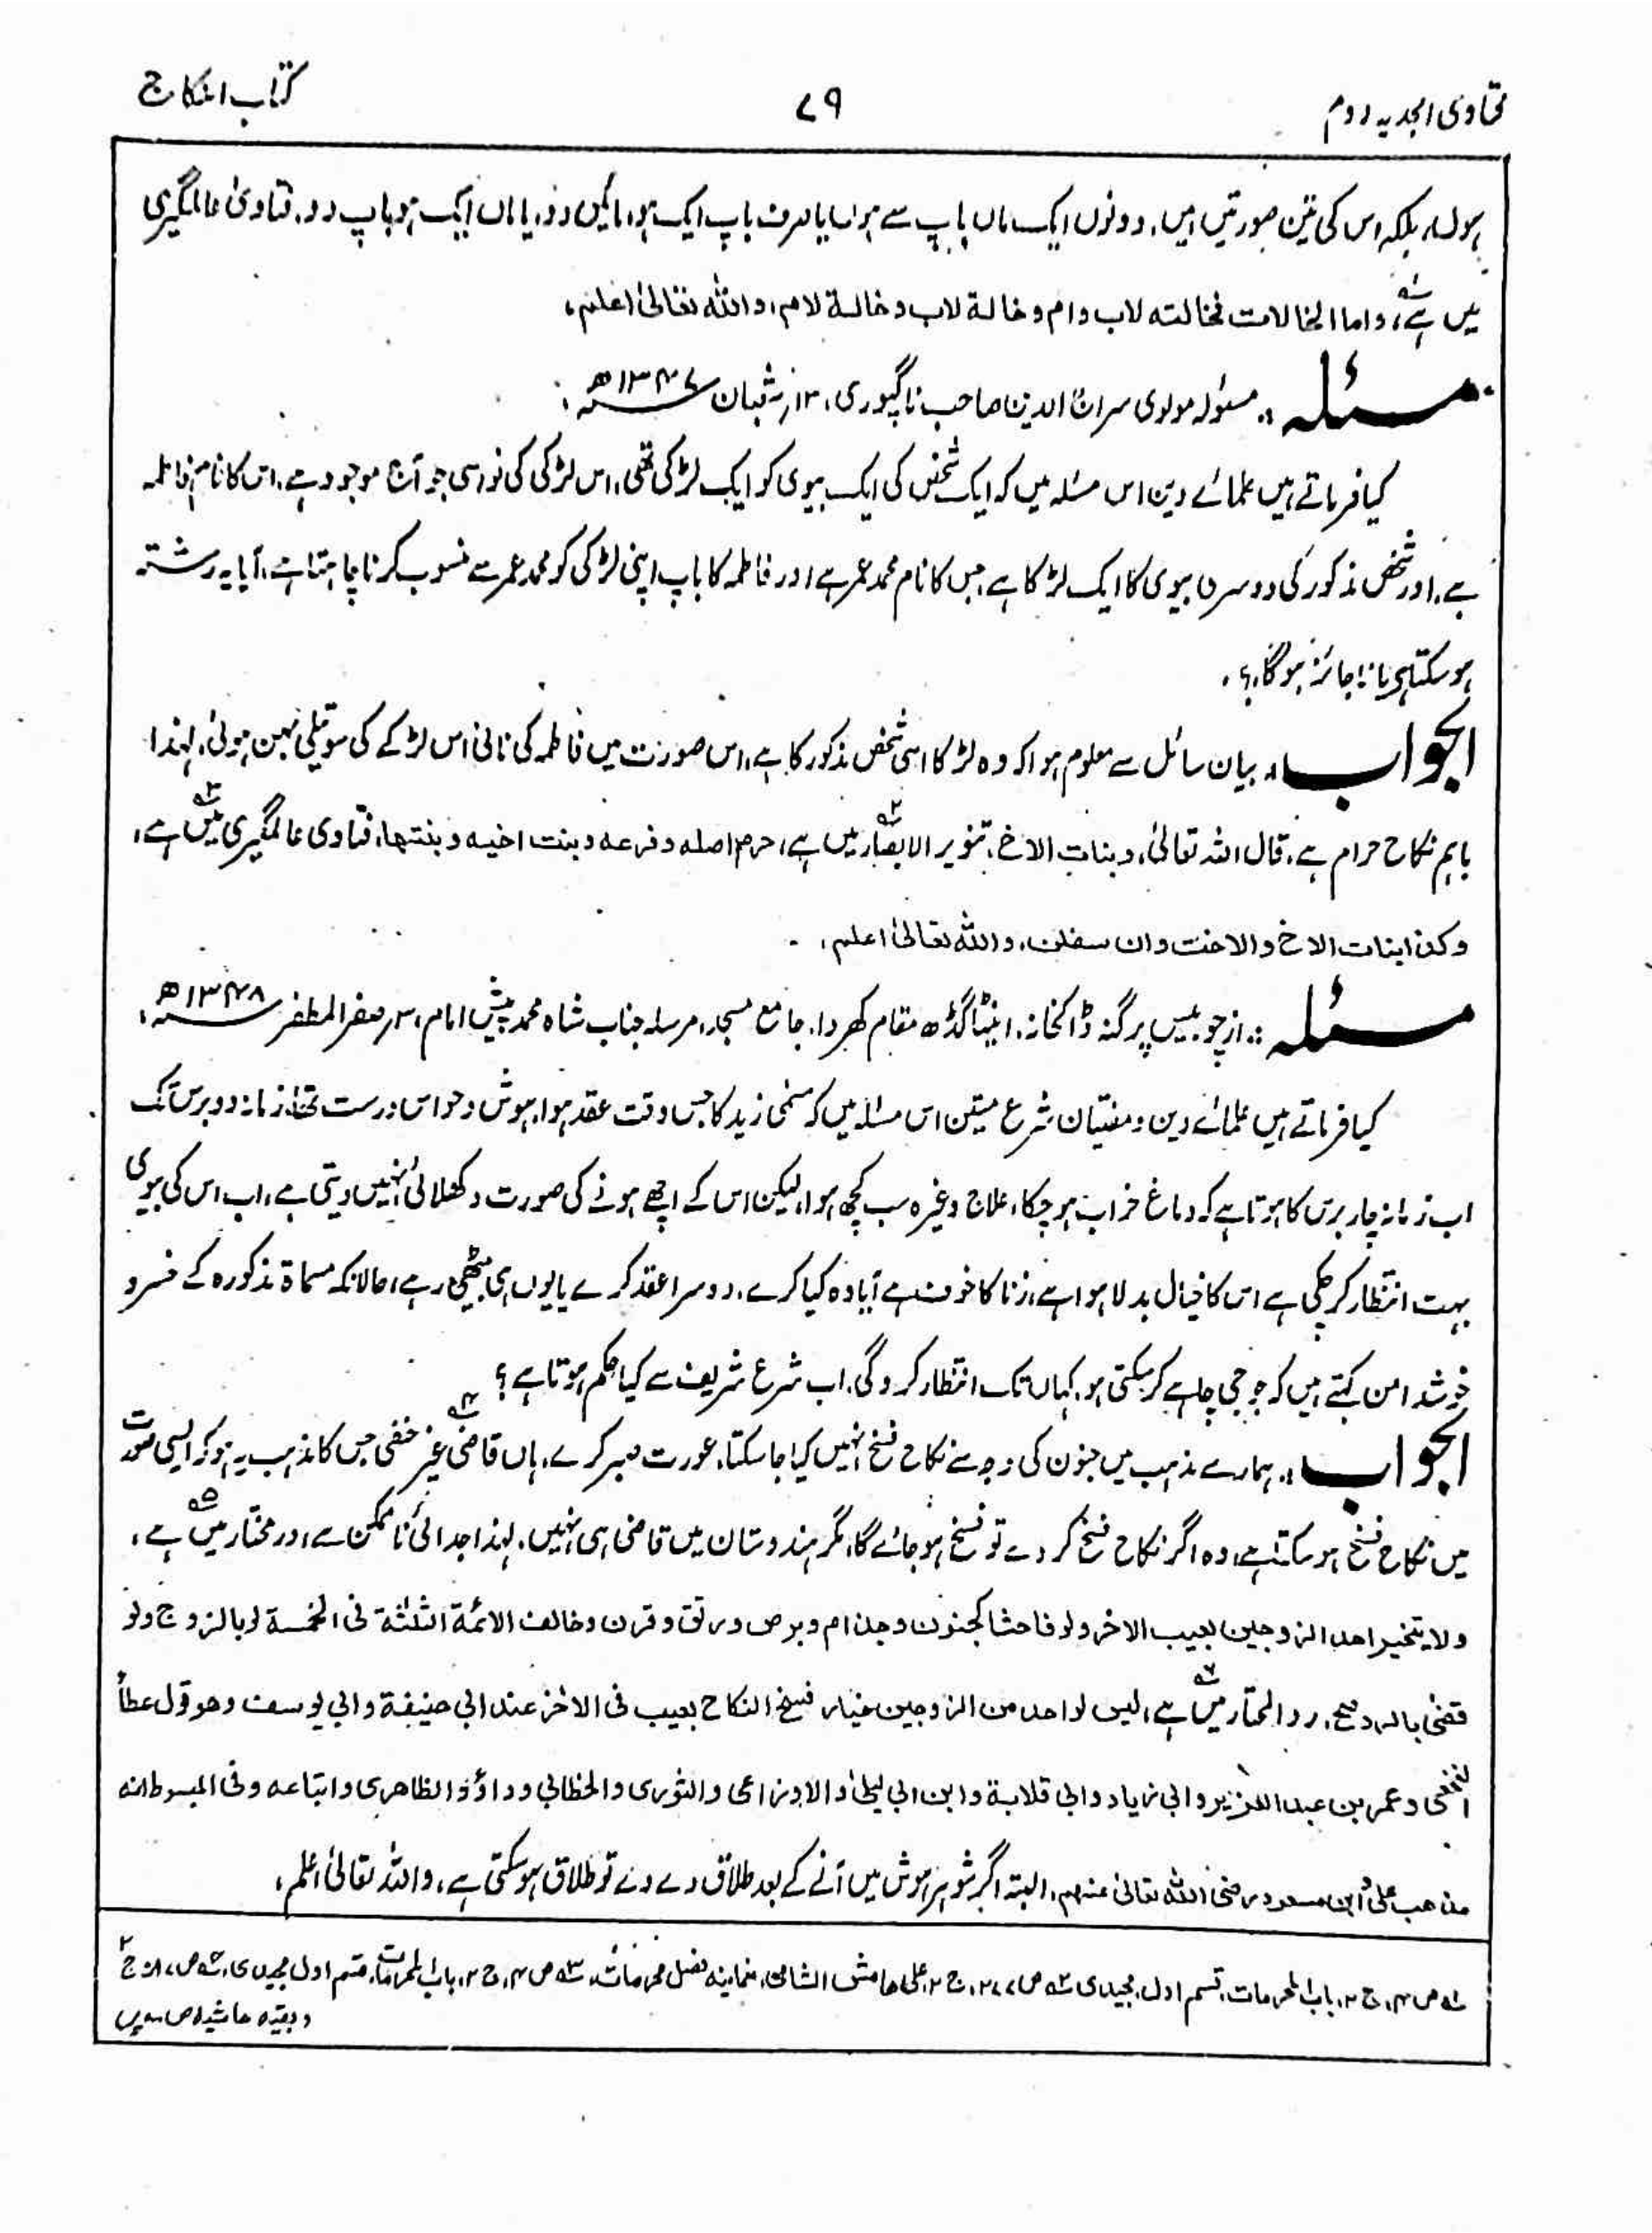 فتاویٰ امجدیہ دوم
۷۹
کتاب النکاح
ہوں، بلکہ اس کی تین صورتیں ہیں، دونوں ایک ماں باپ سے ہوں یا صرف باپ ایک ہو، مائیں دو، یا ماں ایک ہو باپ دو، فتاویٰ عالمگیری
میں ہے، واما الخالات فخالته لاب وام وخالة لاب وخالة لام، واللہ تعالیٰ اعلم،
مسئلہ :۔ مسئولہ مولوی سراج الدین صاحب ناگپوری، ۱۳ شعبان ۱۳۴۷ھ
کیا فرماتے ہیں علمائے دین اس مسئلہ میں کہ ایک شخص کی ایک بیوی کو ایک لڑکی تھی، اس لڑکی کی نواسی جو آج موجود ہے، اس کا نام فاطمہ
ہے، اور شخص مذکور کی دوسری بیوی کا ایک لڑکا ہے، جس کا نام محمد عمر ہے اور فاطمہ کا باپ اپنی لڑکی کو محمد عمر سے منسوب کرنا چاہتا ہے، آیا یہ رشتہ
ہو سکتا ہے یا ناجائز ہوگا،؟
الجواب :۔ بیان سائل سے معلوم ہوا کہ وہ لڑکا اسی شخص مذکور کا ہے، اس صورت میں فاطمہ کی نانی اس لڑکے کی سوتیلی بہن ہوئی، لہٰذا
باہم نکاح حرام ہے، قال اللہ تعالیٰ، وبنات الاخ، تنویر الابصار میں ہے، حرم اصله وفرعه وبنت اخیه وبنتها، فتاویٰ عالمگیری میں ہے،
وکذا بنات الاخ والاخت وان سفلن، واللہ تعالیٰ اعلم،
مسئلہ :۔ از چوبیس پرگنہ ڈاکخانہ، ٹیٹاگڈھ مقام کھردا، جامع مسجد، مرسلہ جناب شاہ محمد پیش امام، ۳ صفر المظفر ۱۳۴۸ھ،
کیا فرماتے ہیں علمائے دین و مفتیان شرع متین اس مسئلہ میں کہ مسمی زید کا جس وقت عقد ہوا، ہوش و حواس درست تھا، زمانہ دو برس تک
اب زمانہ چار برس کا ہوتا ہے کہ دماغ خراب ہو چکا، علاج وغیرہ سب کچھ ہوا، لیکن اس کے اچھے ہونے کی صورت دکھلائی نہیں دیتی ہے، اب اس کی بیوی
بہت انتظار کر چکی ہے اس کا خیال بدلا ہوا ہے، زنا کا خوف ہے آیا وہ کیا کرے، دوسرا عقد کرے یا یوں ہی بیٹھی رہے، حالانکہ مسماۃ مذکورہ کے خسر و
خوشدامن کہتے ہیں کہ جو جی چاہے کر سکتی ہو، کہاں تک انتظار کرو گی، اب شرع شریف سے کیا حکم ہوتا ہے؟
الجواب :۔ ہمارے مذہب میں جنون کی وجہ سے نکاح فسخ نہیں کیا جا سکتا، عورت صبر کرے، ہاں قاضی غیر حنفی جس کا مذہب یہ ہو کہ ایسی صورت
میں نکاح فسخ ہو سکتا ہے، وہ اگر نکاح فسخ کر دے تو فسخ ہو جائے گا، مگر ہندوستان میں قاضی ہی نہیں، لہٰذا جدائی ناممکن ہے، در مختار میں ہے،
ولا یتخیر احد الزوجین بعیب الاخر ولو فاحشا کجنون وجذام وبرص ورتق وقرن وخالف الائمة الثلثة فی الخمسة لو بالزوج ولو
قضی بالرد صح، رد المحتار میں ہے، لیس لواحد من الزوجین خیار فسخ النکاح بعیب فی الاخر عند ابی حنیفة وابی یوسف وهو قول عطاء
النخعی وعمر بن عبد العزیز وابی زیاد وابی قلابة وابن ابی لیلیٰ والاوزاعی والثوری والخطابی وداؤد الظاهری واتباعه وفی المبسوط انه
مذهب علی وابن مسعود رضی اللہ تعالیٰ عنهم، البتہ اگر شوہر ہوش میں آنے کے بعد طلاق دے دے تو طلاق ہو سکتی ہے، واللہ تعالیٰ اعلم،
باب المحرمات، قسم اول، مجیدی علی هامش الشامی، فصل محرمات، باب المحرمات، قسم اول مجیدی